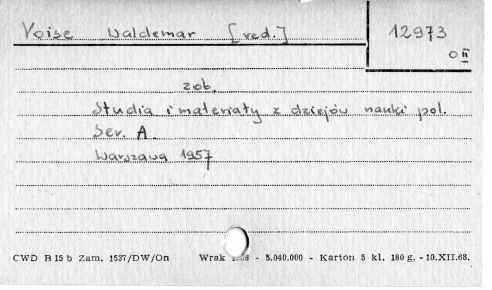 Voise Waldemar [red.]
12973
O II
zob.
Studia i materiały z dziejów nauki pol.
Ser. A.
Warszawa 1957
CWD B 15 b Zam. 1537/DW/On Wrak - 5.040.000 - Karton 5 kl. 180 g, - 10.XII.68.